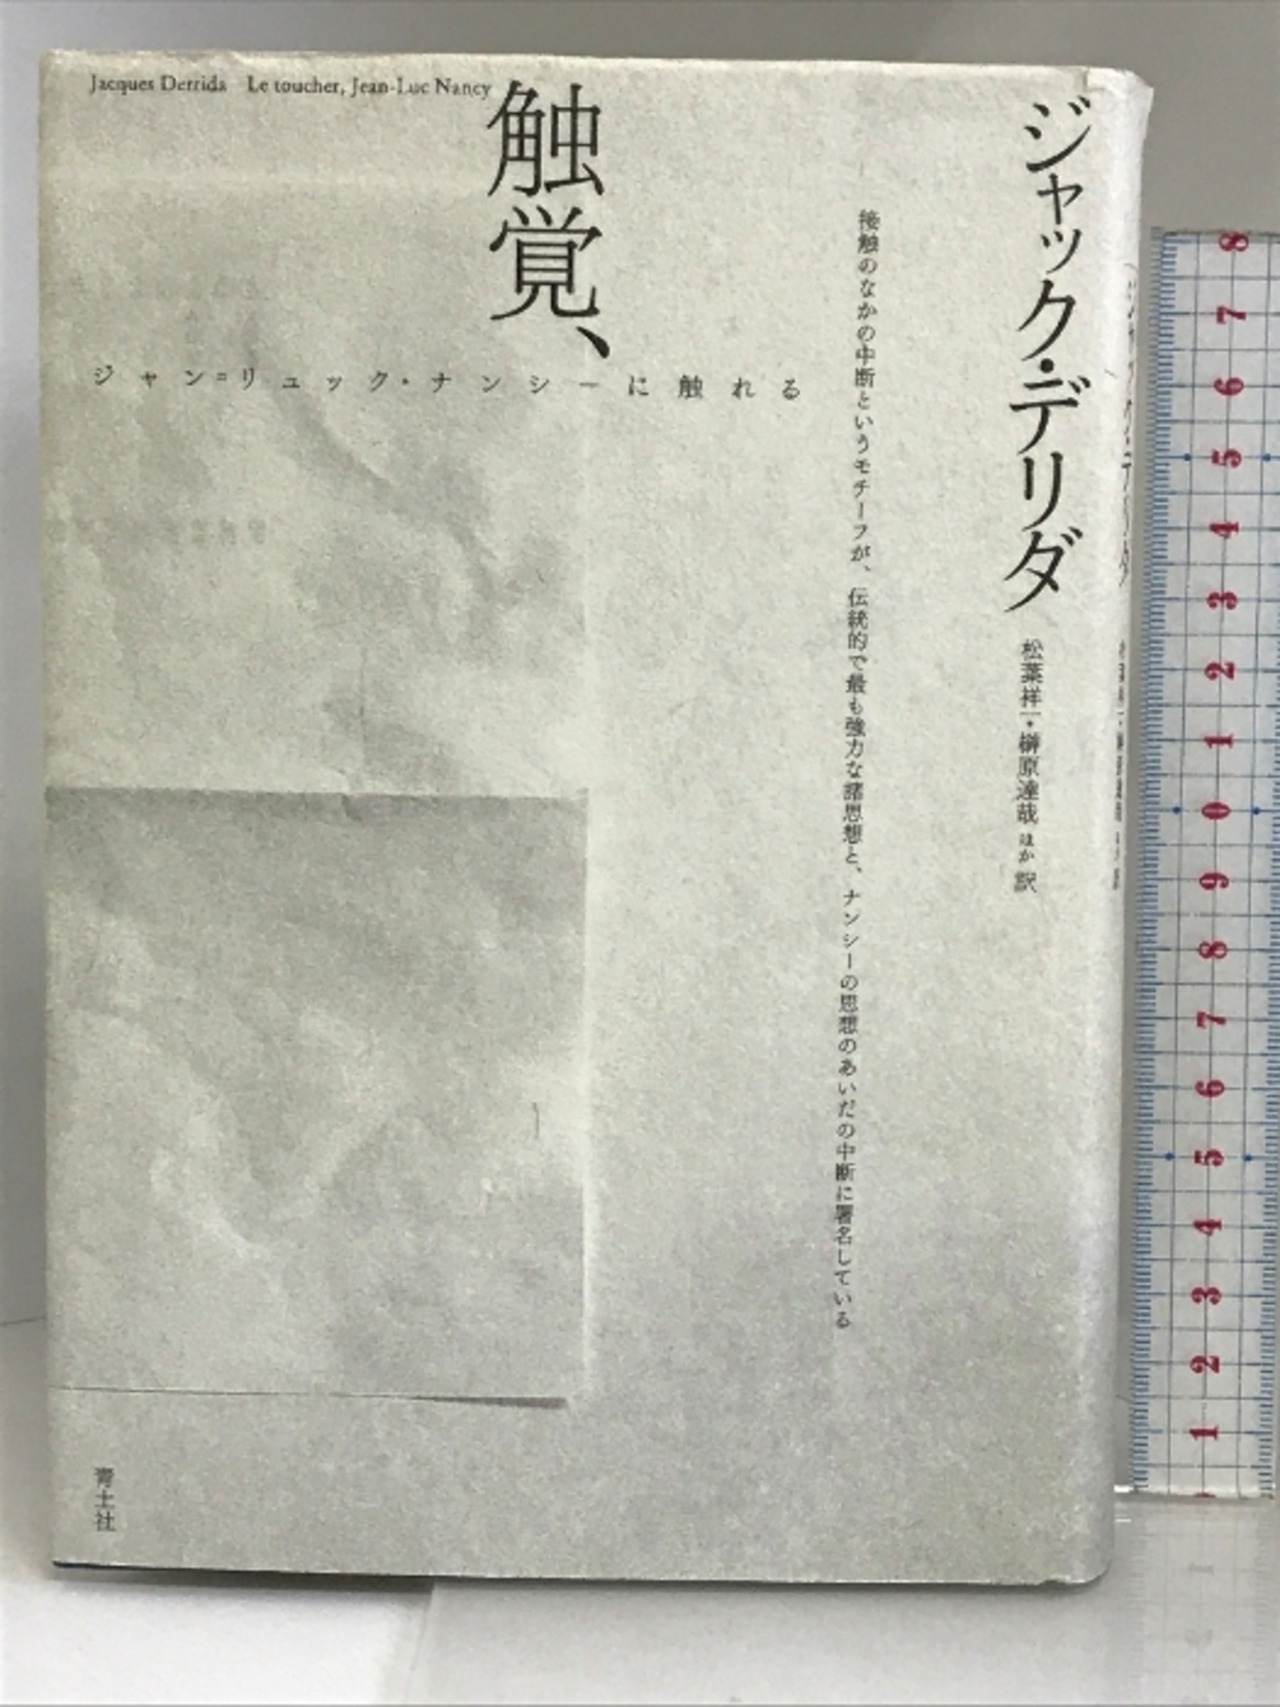 Jacques Derrida Le toucher, Jean-Luc Nancy
ジャック・デリダ
松葉祥一・榊原達哉 ほか 訳
接触のなかの中断というモチーフが、伝統的で最も強力な諸思想と、ナンシーの思想のあいだの中断に署名している
触覚、
ジャン=リュック・ナンシーに触れる
青土社
8
7
6
5
4
3
2
1
0
9
8
7
6
5
4
3
2
1